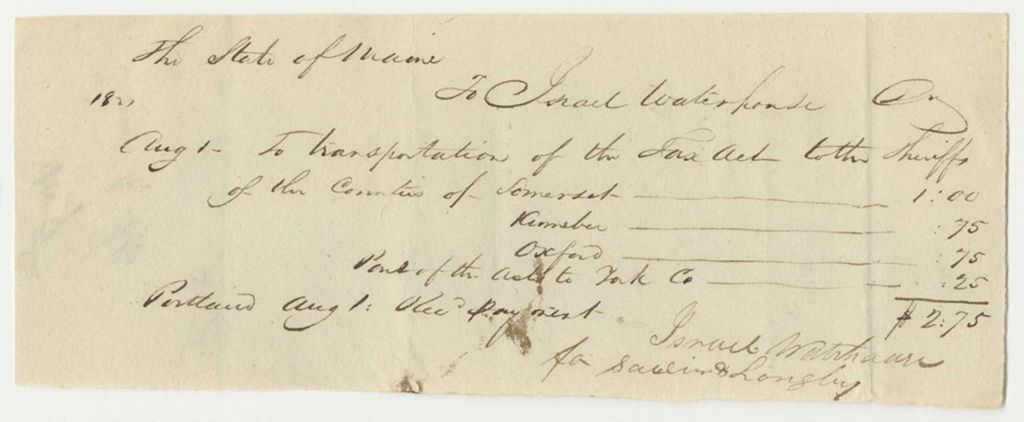 The State of Maine
To Israel Waterhouse Dr
1821
Aug 1- To transportation of the Tax Act to the Sheriffs
of the Counties of Somerset 1:00
Kennebec :75
Oxford :75
Part of the Acts to York Co :25
$ 2:75
Portland Aug 1: Recd Payment
Israel Waterhouse
for & Longley